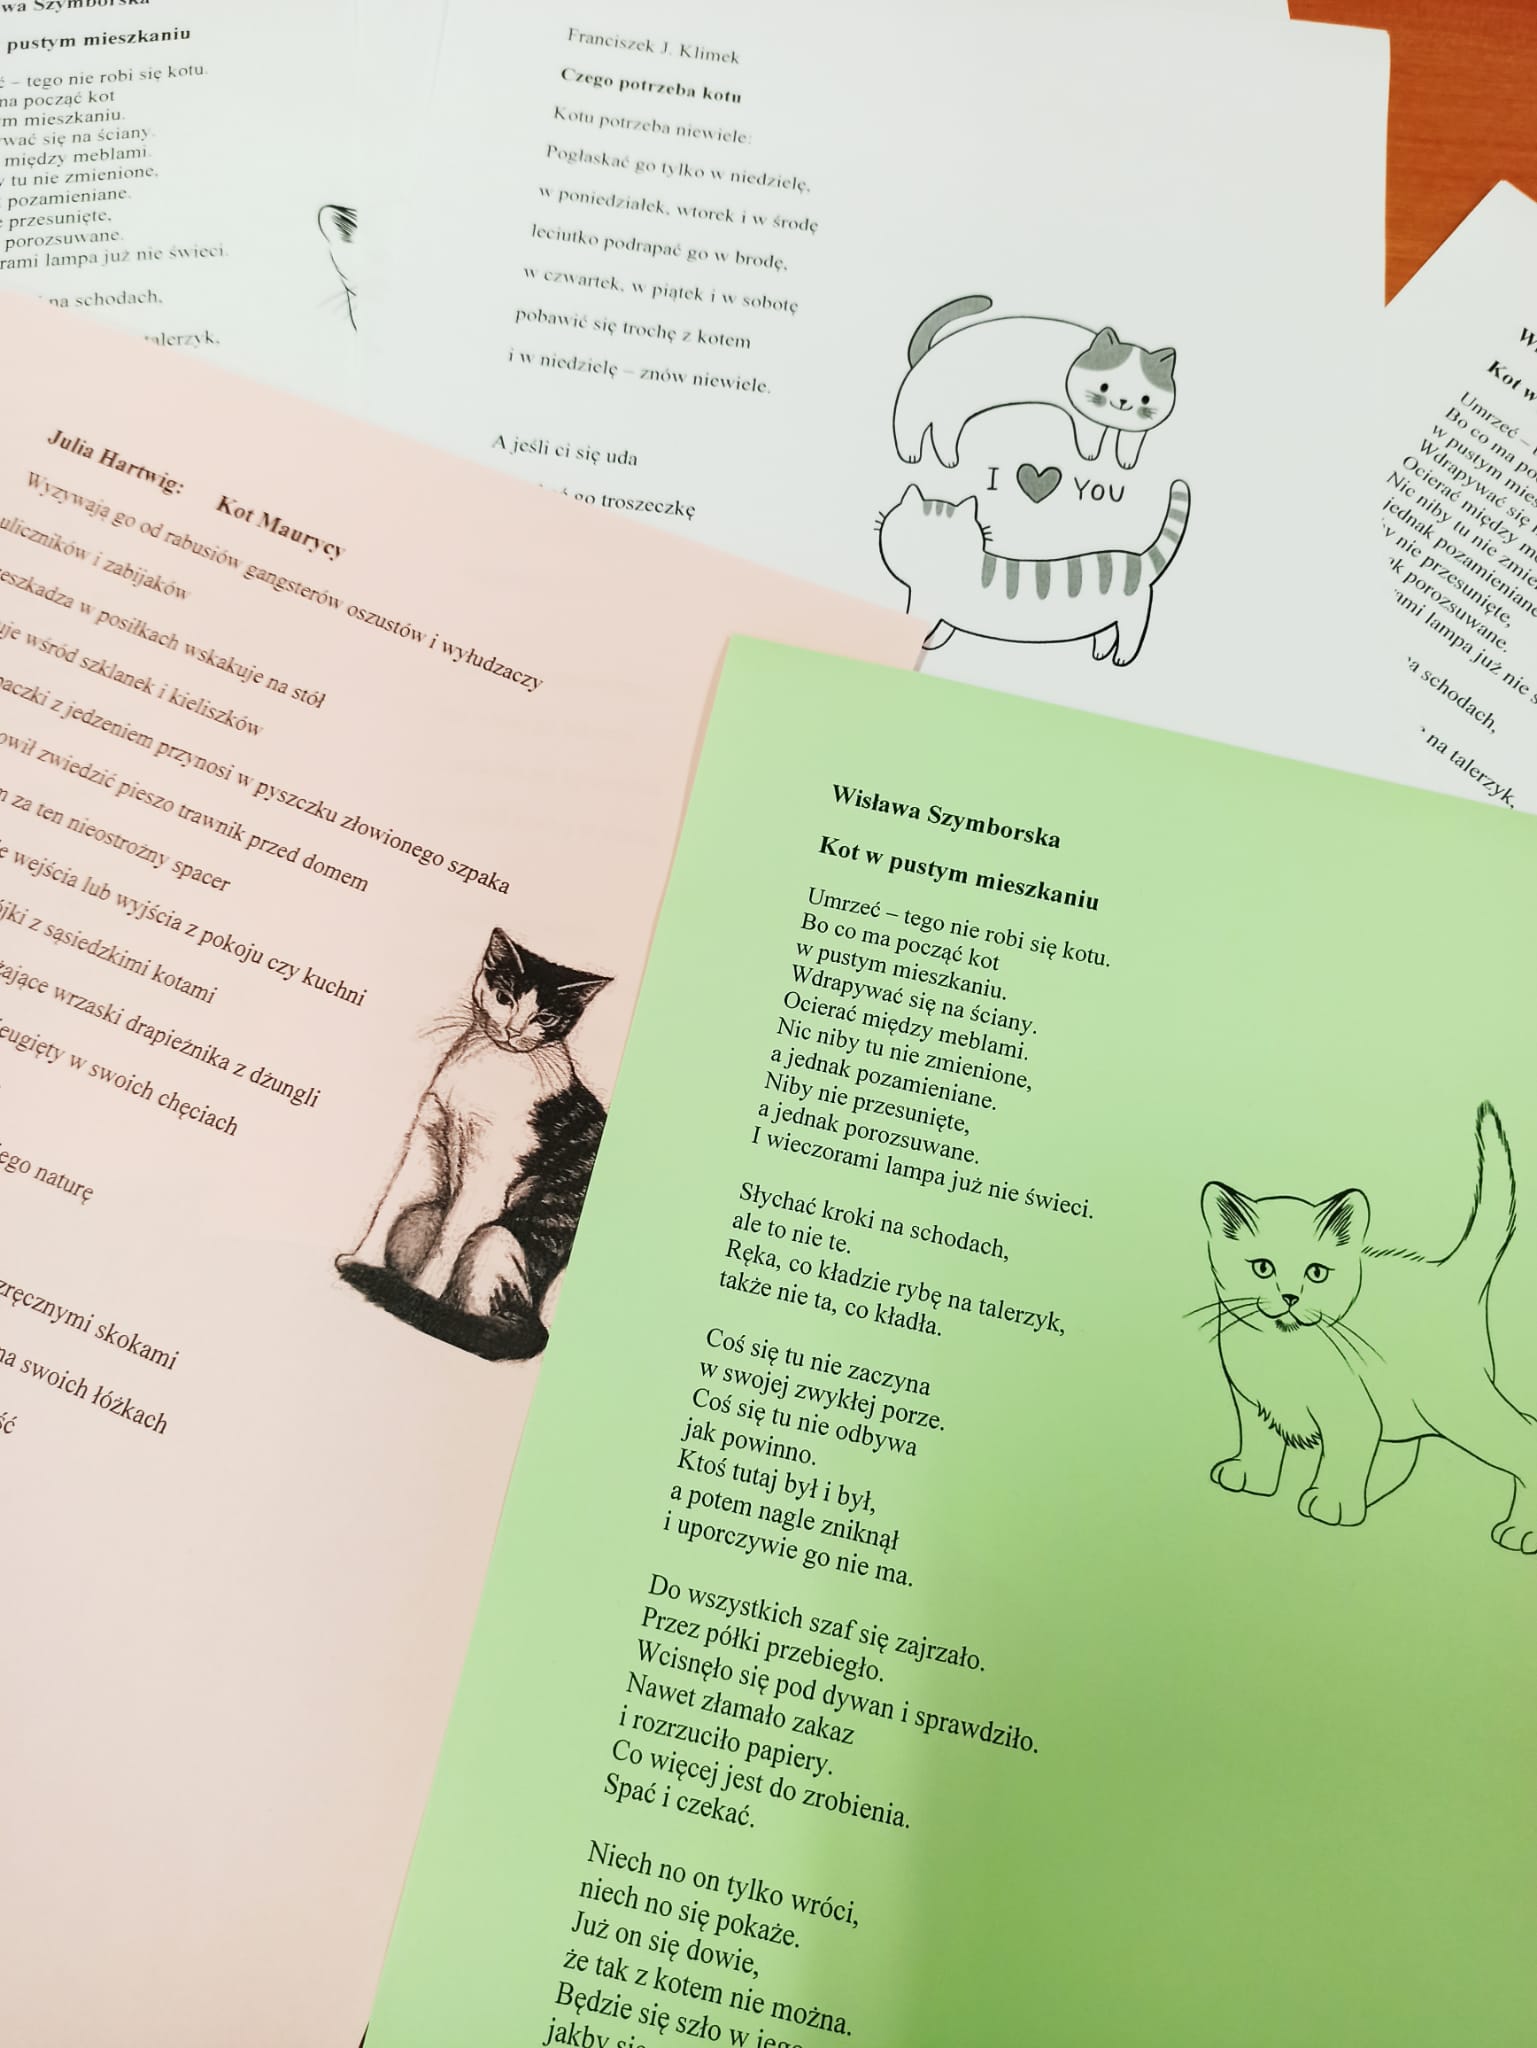 Szymborska
pustym mieszkaniu
– tego nie robi się kotu.
począć kot
mieszkaniu.
się na ściany.
między meblami.
tu nie zmienione,
pozamieniane.
przesunięte,
porozsuwane.
lampa już nie świeci.
na schodach,
talerzyk,
Franciszek J. Klimek
Czego potrzeba kotu
Kotu potrzeba niewiele:
Pogłaskać go tylko w niedzielę,
w poniedziałek, wtorek i w środę
leciutko podrapać go w brodę,
w czwartek, w piątek i w sobotę
pobawić się trochę z kotem
i w niedzielę – znów niewiele.
A jeśli ci się uda
go troszeczkę
I YOU
Kot w
Umrzeć –
Bo co ma
w pustym
Wdrapywać się
Ocierać między
Nic niby tu nie
jednak pozamieniane
nie przesunięte,
porozsuwane.
lampa już nie
schodach,
na talerzyk,
Julia Hartwig: Kot Maurycy
Wyzywają go od rabusiów gangsterów oszustów i wyłudzaczy
uliczników i zabijaków
w posiłkach wskakuje na stół
wśród szklanek i kieliszków
z jedzeniem przynosi w pyszczku złowionego szpaka
zwiedzić pieszo trawnik przed domem
za ten nieostrożny spacer
wejścia lub wyjścia z pokoju czy kuchni
z sąsiedzkimi kotami
wrzaski drapieżnika z dżungli
w swoich chęciach
naturę
skokami
na swoich łóżkach
Wisława Szymborska
Kot w pustym mieszkaniu
Umrzeć – tego nie robi się kotu.
Bo co ma począć kot
w pustym mieszkaniu.
Wdrapywać się na ściany.
Ocierać między meblami.
Nic niby tu nie zmienione,
a jednak pozamieniane.
Niby nie przesunięte,
a jednak porozsuwane.
I wieczorami lampa już nie świeci.
Słychać kroki na schodach,
ale to nie te.
Ręka, co kładzie rybę na talerzyk,
także nie ta, co kładła.
Coś się tu nie zaczyna
w swojej zwykłej porze.
Coś się tu nie odbywa
jak powinno.
Ktoś tutaj był i był,
a potem nagle zniknął
i uporczywie go nie ma.
Do wszystkich szaf się zajrzało.
Przez półki przebiegło.
Wcisnęło się pod dywan i sprawdziło.
Nawet złamało zakaz
i rozrzuciło papiery.
Co więcej jest do zrobienia.
Spać i czekać.
Niech no on tylko wróci,
niech no się pokaże.
Już on się dowie,
że tak z kotem nie można.
Będzie się szło w jego
jakby